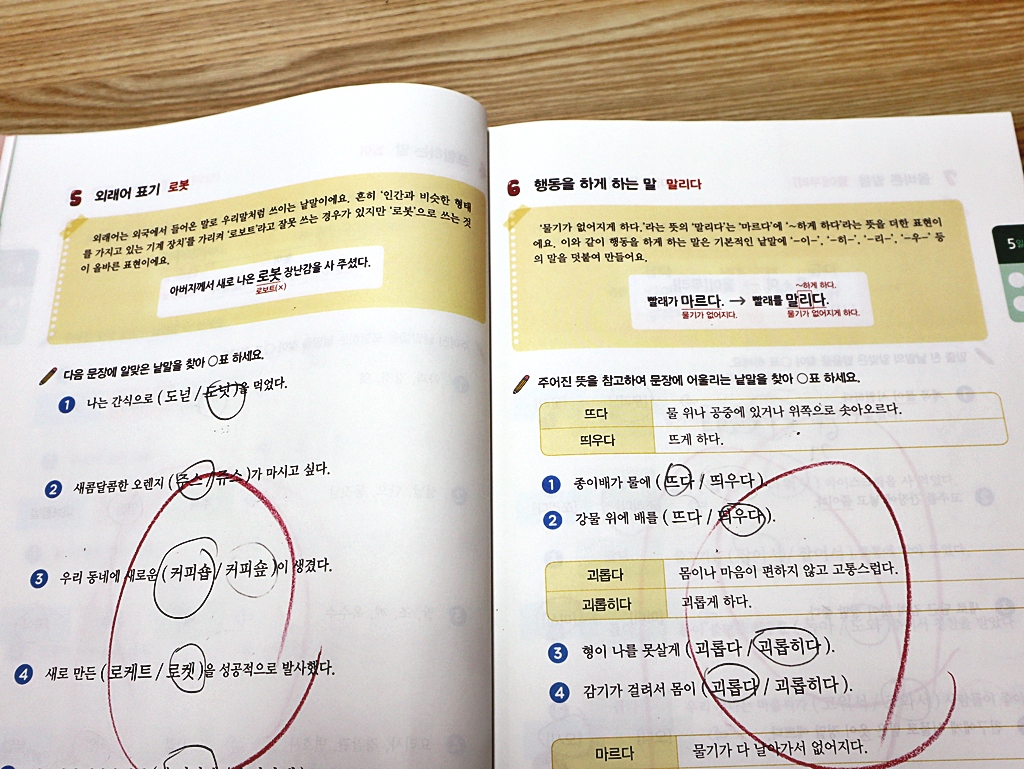 5 외래어 표기 로봇
외래어는 외국에서 들어온 말로 우리말처럼 쓰이는 낱말이에요. 흔히 '인간과 비슷한 형태
를 가지고 있는 기계 장치'를 가리켜 '로보트'라고 잘못 쓰는 경우가 있지만 '로봇'으로 쓰는 것
이 올바른 표현이에요.
아버지께서 새로 나온 로봇 장난감을 사 주셨다.
로보트(×)
다음 문장에 알맞은 낱말을 찾아 ○표 하세요.
1 나는 간식으로 ( 도넏 / 도넛 )을 먹었다.
2 새콤달콤한 오렌지 ( 주스 / 쥬스 )가 마시고 싶다.
3 우리 동네에 새로운 ( 커피숍 / 커피숖 )이 생겼다.
4 새로 만든 ( 로케트 / 로켓 )을 성공적으로 발사했다.
6 행동을 하게 하는 말 말리다
'물기가 없어지게 하다.'라는 뜻의 '말리다'는 '마르다'에 '~하게 하다'라는 뜻을 더한 표현이
에요. 이와 같이 행동을 하게 하는 말은 기본적인 낱말에 '-이-', '-히-', '-리-', '-우-' 등
의 말을 덧붙여 만들어요.
~하게 하다.
빨래가 마르다. → 빨래를 말리다.
물기가 없어지다. 물기가 없어지게 하다.
주어진 뜻을 참고하여 문장에 어울리는 낱말을 찾아 ○표 하세요.
뜨다 물 위나 공중에 있거나 위쪽으로 솟아오르다.
띄우다 뜨게 하다.
1 종이배가 물에 ( 뜨다 / 띄우다 ).
2 강물 위에 배를 ( 뜨다 / 띄우다 ).
괴롭다 몸이나 마음이 편하지 않고 고통스럽다.
괴롭히다 괴롭게 하다.
3 형이 나를 못살게 ( 괴롭다 / 괴롭히다 ).
4 감기가 걸려서 몸이 ( 괴롭다 / 괴롭히다 ).
마르다 물기가 다 날아가서 없어지다.
5일